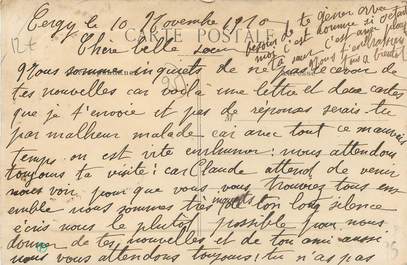 Cergy le 10 Novembre 1910
12 €
Chère belle soeur
CARTE POSTALE
besoin de te gêner avec
moi c'est comme si octait
ta soeur c'est avec plaisir
Nous t'embrassons
tous à bientôt
Nous sommes inquiets de ne pas recevoir de
tes nouvelles car voilà une lettre et deux cartes
que je t'envoie et pas de réponses serais tu
par malheur malade car avec tout ce mauvais
temps on est vite enrhumer : nous attendons
toujours ta visite : car Claude attend de venir
nous voir pour que vous vous trouviez tous en
semble nous sommes très inquiets de ton long silence
écris nous le plutot possible pour nous
donner de tes nouvelles et de ton ami aussi
nous vous attendons toujours : tu n'as pas